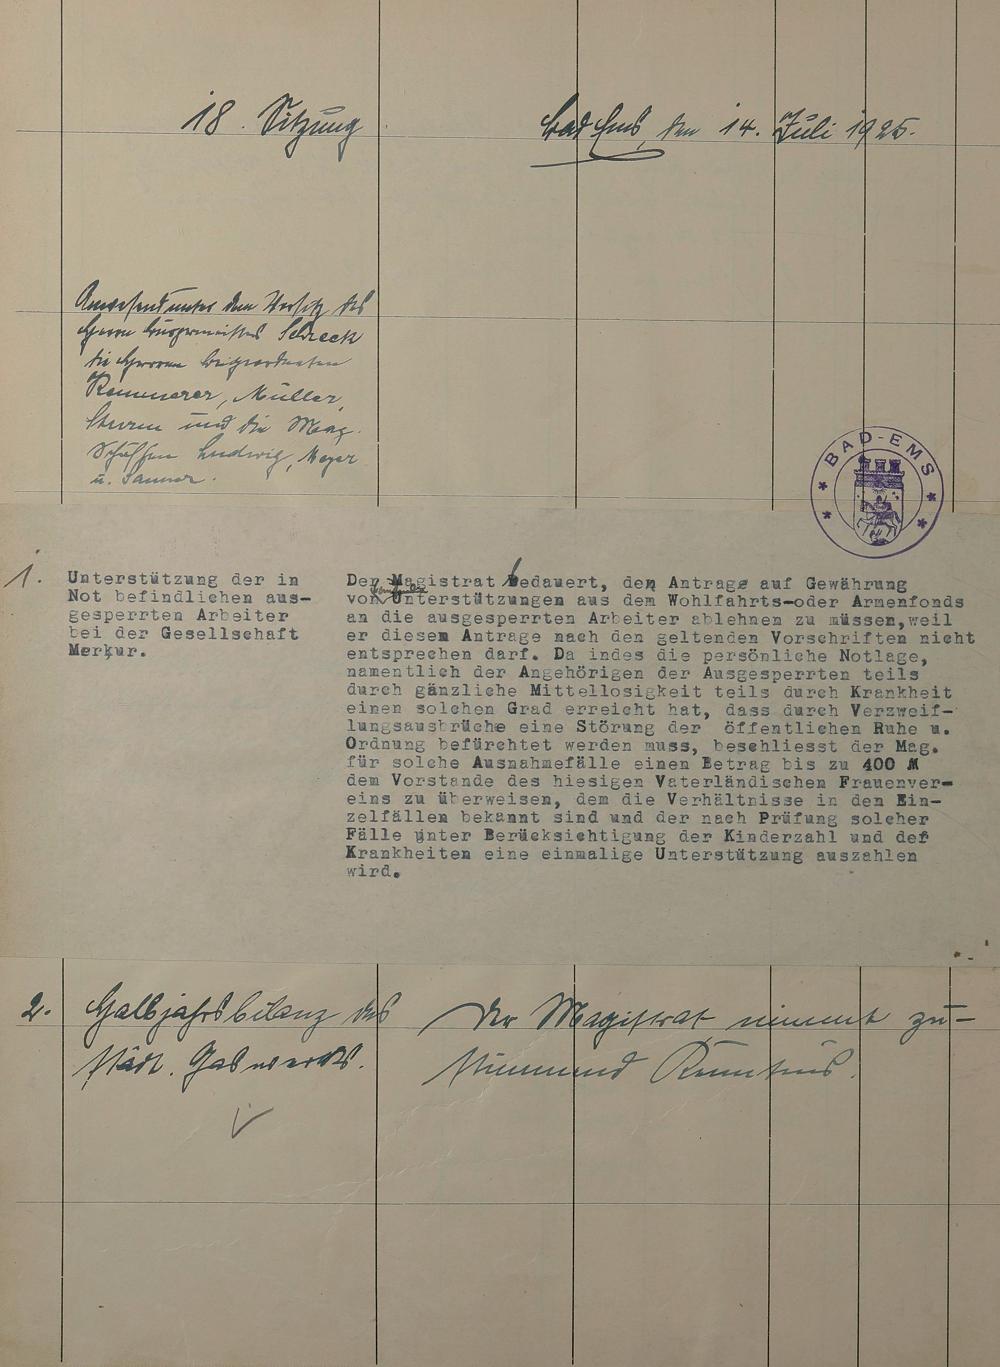 18. Sitzung
Bad Ems, den 14. Juli 1925.
Anwesend unter dem Vorsitz des
Herrn Bürgermeisters Schreck
die Herren Beigeordneten
Kemmerer, Müller,
Sturm und die Mag.
Schöffen Ludwig, Meyer
u. Sauner.
BAD-EMS
1.
Unterstützung der in
Not befindlichen aus-
gesperrten Arbeiter
bei der Gesellschaft
Merkur.
Der Magistrat bedauert, den Antrag auf Gewährung
von Unterstützungen aus dem Wohlfahrts-oder Armenfonds
an die ausgesperrten Arbeiter ablehnen zu müssen,weil
er diesem Antrage nach den geltenden Vorschriften nicht
entsprechen darf. Da indes die persönliche Notlage,
namentlich der Angehörigen der Ausgesperrten teils
durch gänzliche Mittellosigkeit teils durch Krankheit
einen solchen Grad erreicht hat, dass durch Verzweif-
lungsausbrüche eine Störung der öffentlichen Ruhe u.
Ordnung befürchtet werden muss, beschliesst der Mag.
für solche Ausnahmefälle einen Betrag bis zu 400 M
dem Vorstande des hiesigen Vaterländischen Frauenver-
eins zu überweisen, dem die Verhältnisse in den Ein-
zelfällen bekannt sind und der nach Prüfung solcher
Fälle unter Berücksichtigung der Kinderzahl und der
Krankheiten eine einmalige Unterstützung auszahlen
wird.
2. Halbjahrsbilanz des
städt. Gaswerks.
Der Magistrat nimmt zu-
stimmend Kenntnis.